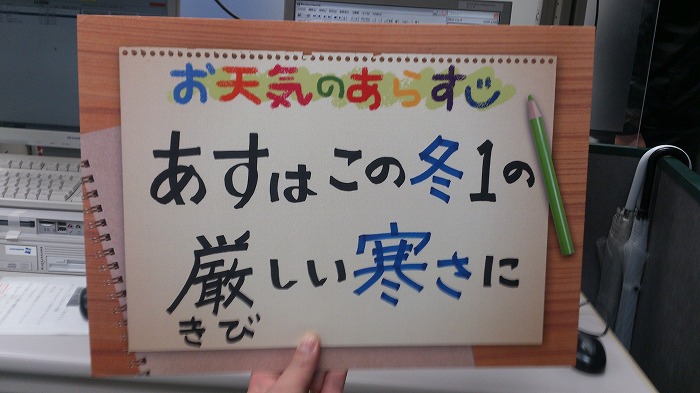 お天気のあらすじ
あすはこの冬1の
厳しい寒さに
きび